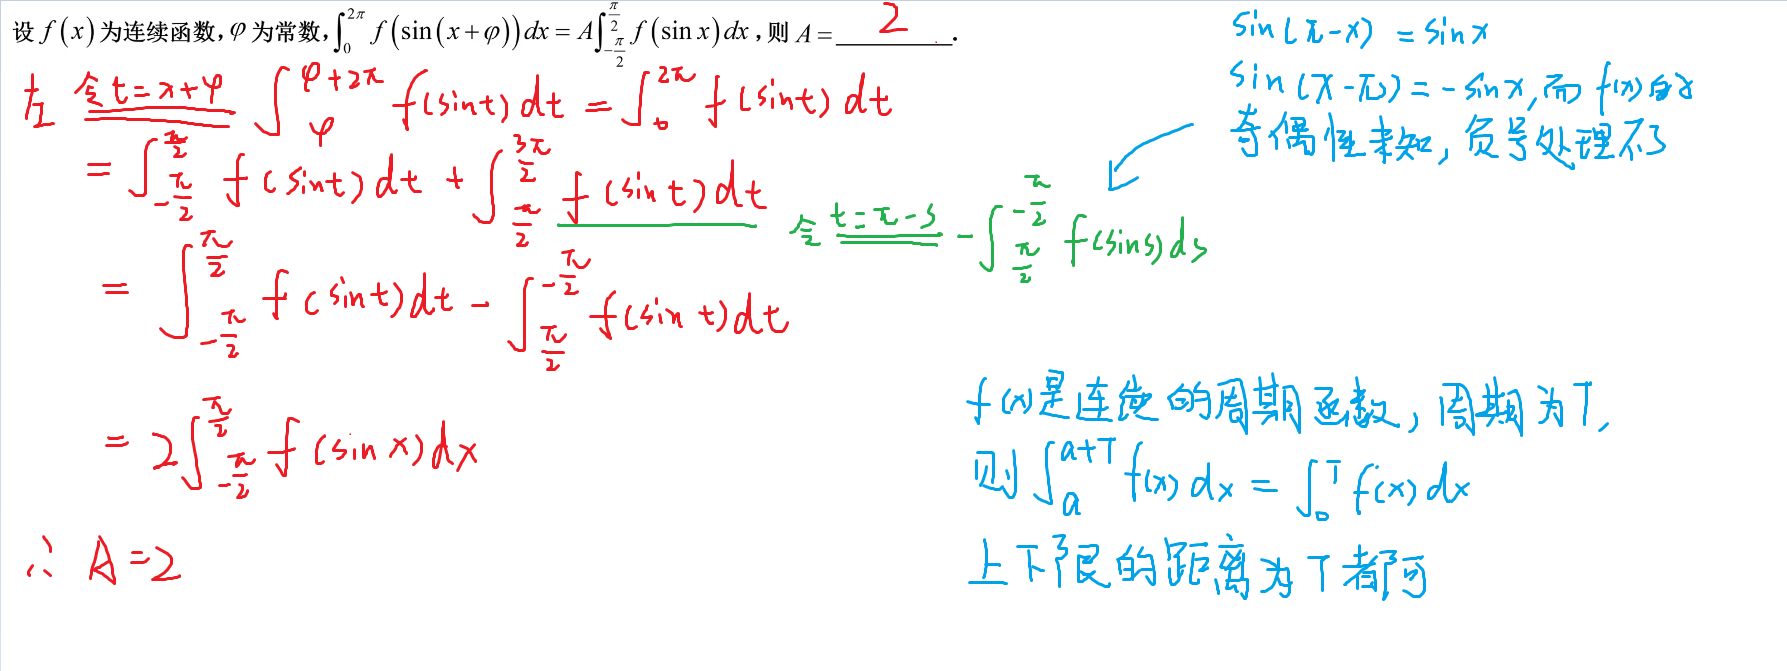 设 f(x) 为连续函数, φ 为常数, ∫_0^{2π} f(sin(x+φ))dx = A∫_{-π/2}^{π/2} f(sin x)dx, 则 A = 2 .
左 令t=x+φ ∫_φ^{φ+2π} f(sint)dt = ∫_0^{2π} f(sint)dt
= ∫_{-π/2}^{π/2} f(sint)dt + ∫_{π/2}^{3π/2} f(sint)dt 令 t=π-s -∫_{π/2}^{-π/2} f(sins)ds
= ∫_{-π/2}^{π/2} f(sint)dt - ∫_{π/2}^{-π/2} f(sint)dt
= 2∫_{-π/2}^{π/2} f(sinx)dx
∴ A=2
sin(π-x) = sinx
sin(x-π) = -sinx, 而 f(x)的
奇偶性未知, 负号处理不了
f(x)是连续的周期函数, 周期为T,
则 ∫_a^{a+T} f(x)dx = ∫_0^T f(x)dx
上下限的距离为T都可